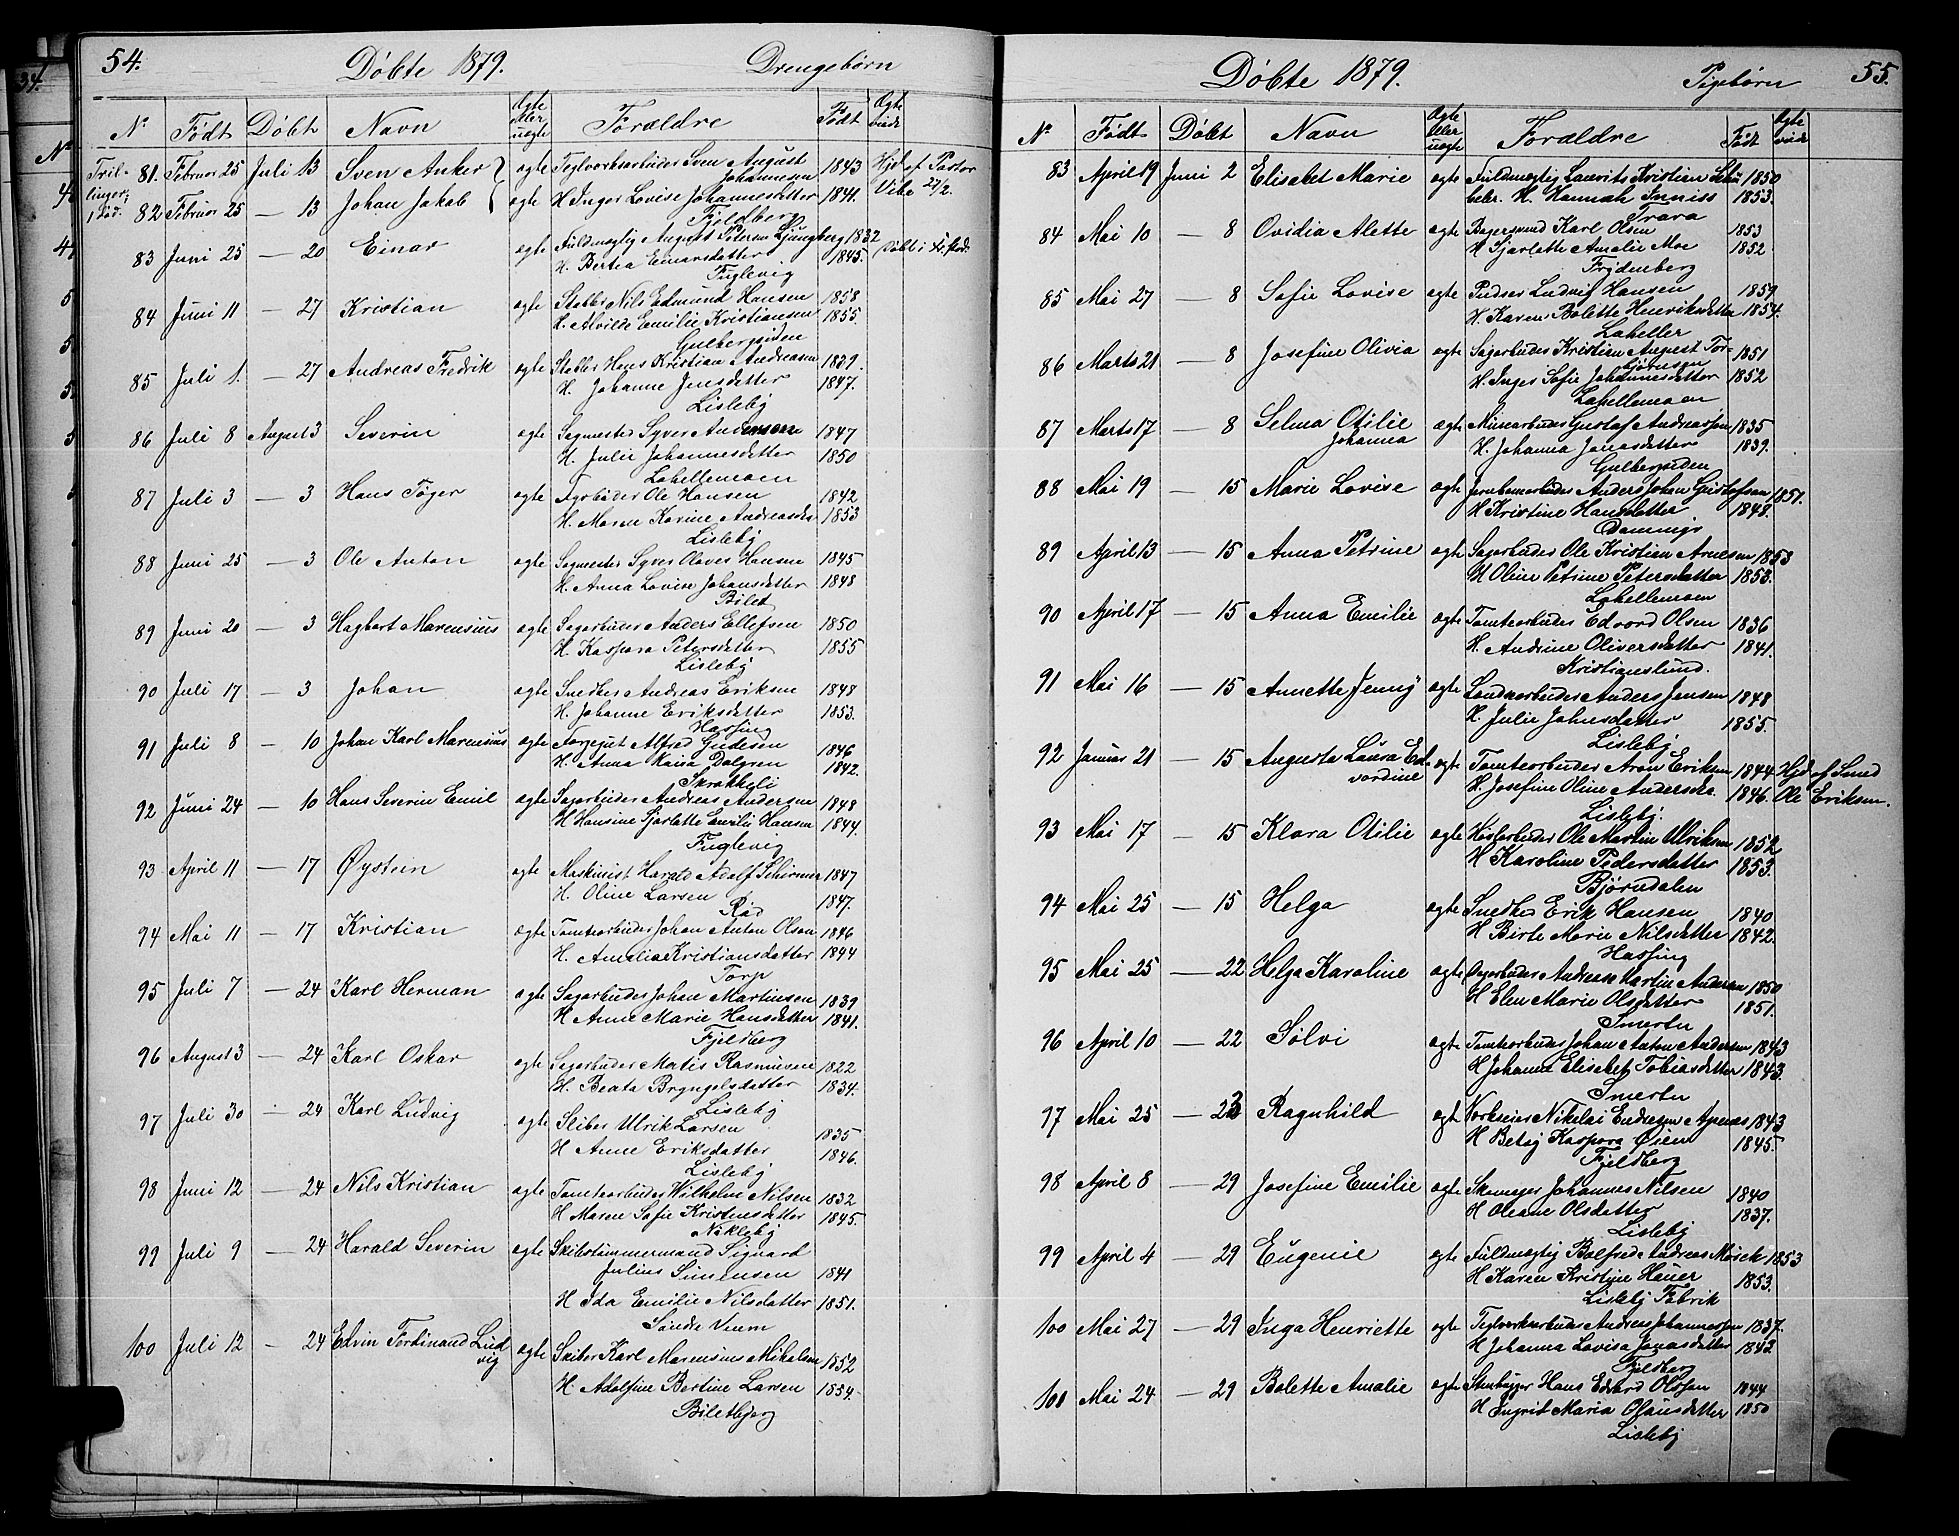 54.
Døbte 1879.
Drengebørn
No Født Døbt Navn Ægte eller uægte Forældre Født
Tril-
linger;
1 død.
81. Februar 25 Juli 13 Sven Anker ægte Teglverksarbeider Sven August 1843 Hjd af Pastor
Johannesen Vibe 27/2.
82 Februar 25 — 13 Johan Jakob ægte H Inger Lovise Johannesdatter 1841.
Fjeldberg
83 Juni 25 — 20 Einar ægte Fuldmægtig August Peterson Ljungberg 1832 Døbt i
H. Bertea Einarsdatter 1845.
Fuglevig
84 Juni 11 — 27 Kristian ægte Stabber Nils Edmund Hansen 1858
H. Alvilde Emilie Kristiansen 1855.
85 Juli 1. — 27 Andreas Fredrik ægte Hans Kristian Andreasen 1839.
H. Johanne Jensdatter 1847.
Lisleby
86 Juli 8 August 3 Severin ægte Sagmester Syver Andersen 1847
H. Julie Johannesdatter 1850
Labellemoen
87 Juli 3 — 3 Hans Tøger ægte Fyrbøder Ole Hansen 1842
H. Maren Karine Andreasdtr 1853
Lisleby
88 Juni 25 — 3 Ole Anton ægte Sagmester Syver Olaves Hansen 1845
H. Anna Lovise Johansdatter 1848
Bilet
89 Juni 20 — 3 Hagbart Marensius ægte Sagarbeider Anders Ellefsen 1850
H. Kaspara Petersdatter 1855
Lisleby
90 Juli 17 — 3 Johan ægte Snedker Andreas Eriksen 1848
H. Johanne Eriksdatter 1853.
Hassing
91 Juli 8 — 10 Johan Karl Marensius ægte Alfred Gudesen 1846
H. Anna Kaisa Dalgren 1842.
92 Juni 24 — 10 Hans Severin Emil ægte Sagarbeider Andreas Andersen 1848
H Hansine Sjarlotte Emilie Hansen 1844.
Fuglevig
93 April 11 — 17 Øystein ægte Maskinist Harald Adolf Schirmer 1847
H. Oline Larsen 1847.
Rød
94 Mai 11 — 17 Kristian ægte Tomtearbeider Johan Anton Olsen 1846
H. Amalia Kristiansdatter 1844
Torp
95 Juli 7 — 24 Karl Herman ægte Sagarbeider Johan Martinsen 1839
H Anne Marie Hansdatter 1841.
Fjeldberg
96 August 3 — 24 Karl Oskar ægte Sagarbeider Matis Rasmussen 1822
H. Beata Bryngelsdatter 1834.
Lisleby
97 Juli 30 — 24 Karl Ludvig ægte Sliber Ulrik Larsen 1835
H Anne Eriksdatter 1846.
Lisleby
98 Juni 12 — 24 Nils Kristian ægte Tomtearbeider Wilhelm Nilsen 1832
H Maren Sofie Kristensdatter 1845.
Nøkleby
99 Juli 9 — 24 Harald Severin ægte Skibstømmermand Sigvard
Julius Simensen 1841
H Ida Emilie Nilsdatter 1851.
Søndre Veum
100 Juli 12 — 24 Edvin Ferdinand Lud
vig ægte Karl Marensius Mikalsen 1852
H Adolfine Bertine Larsen 1854.
Biletbjerg
Døbte 1879.
Pigebørn
55.
No Født Døbt Navn Ægte eller uægte Forældre Født
83 April 19 Juni 2 Elisabet Marie ægte Fuldmægtig Laurits Kristian 1850
H. Hannah Inniss 1853.
Trara
84 Mai 10 — 8 Ovidia Alette ægte Bagersvend Karl Olsen 1853
H Sjarlotte Amalie Moe 1852
Frydenberg
85 Mai 27 — 8 Sofie Lovise ægte Pudser Ludvig Hansen 1859
H. Karen Bolette Henriksdatter 1854.
Labellen
86 Marts 21 — 8 Josefine Olivia ægte Sagarbeider Kristian August Tor- 1851
bjørnsen
H. Inger Sofie Johannesdatter 1852
Labellemoen
87 Marts 17 — 8 Selma Otilie
Johanna ægte Gustaf Andreassøn 1835
H. Johanna Jonasdatter 1839.
88 Mai 19 — 15 Marie Lovise ægte Anders Johan Gustafson 1851.
H Kristine Hansdatter 1848.
89 April 13 — 15 Anna Petrine ægte Sagarbeider Ole Kristian Arnesen 1853
H Oline Petrine Petersdatter 1853.
Labellemoen
90 April 17 — 15 Anna Emilie ægte Tomtearbeider Edvard Olsen 1836
H. Andrine Oliversdatter 1841.
Kristianslund.
91 Mai 16 — 15 Annette Jenny ægte Anders Jensen 1848
H. Julie Johnsdatter 1855.
Lisleby
92 Januar 21 — 15 Augusta Laura Ed-
vardine ægte Tomtearbeider Aron Eriksen 1844 Hjd af Smed
H. Josefine Oline Andersdtr. 1846. Ole Eriksen.
Lisleby.
93 Mai 17 — 15 Klara Otilie ægte Ole Martin Ulriksen 1852
H Karoline Pedersdatter 1853.
Bjørndalen
94 Mai 25 — 15 Helga ægte Snedker Erik Hansen 1840
H Birte Marie Nilsdatter 1842.
Hassing
95 Mai 25 — 22 Helga Karoline ægte Sagarbeider Andreas Martin Andersen 1850
H Elen Marie Olsdatter 1851.
Smertu
96 April 10 — 22 Sølvi ægte Tomtearbeider Johan Anton Andersen 1843
H Johanne Elisabet Tobiasdatter 1843.
Smertu
97 Mai 25 — 23 Ragnhild ægt Værkseier Nikolai Endresen Apenæs 1843
H Betsy Kaspara Øien 1845.
Fjeldberg
98 April 8 — 29 Josefine Emilie ægte Skomager Johannes Nilsen 1840
H Oleane Olsdatter 1837.
Lisleby
99 April 4 — 29 Eugenie ægte Fuldmægtig Balfred Andreas Mørck 1853
H Karen Kristine Hauer 1853.
Lisleby Fabrik
100 Mai 27 — 29 Inga Henriette ægte Teglverksarbeider Andreas Johannessøn 1837.
H Johanna Lovisa Jonasdatter 1842
Fjeldberg
101 Mai 24 — 29 Bolette Amalie ægte Stenhugger Hans Edvard Olsson 1844
H Ingrid Maria Olausdatter 1850
Lisleby